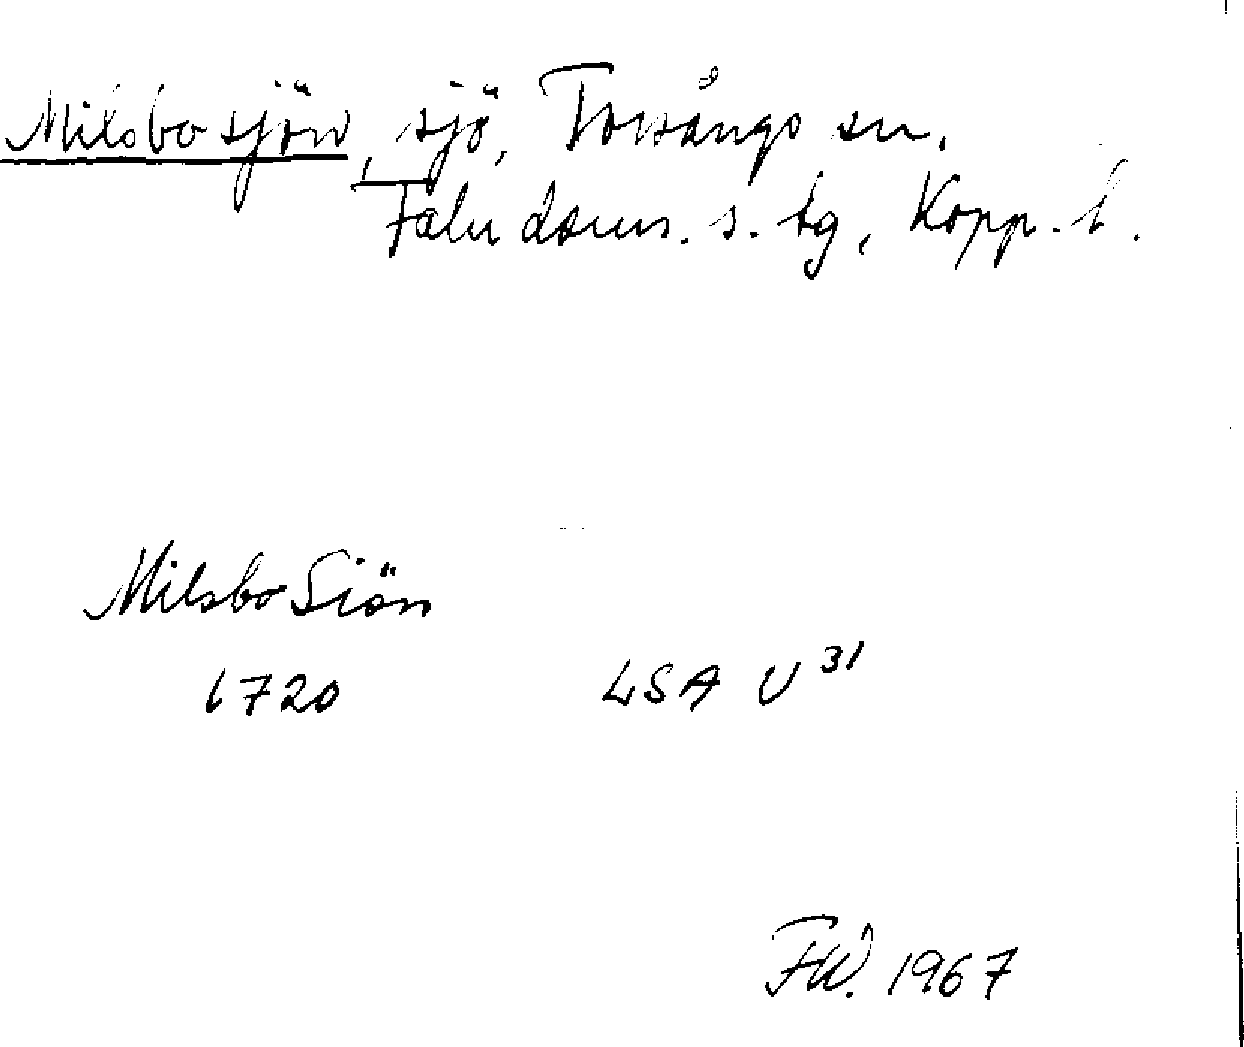 Milsbosjön, sjö, Torsångs sn.
Falu doms. s. tg, Kopp. l.
Milsbo Siön
1720 LSA U 31
FW. 1967